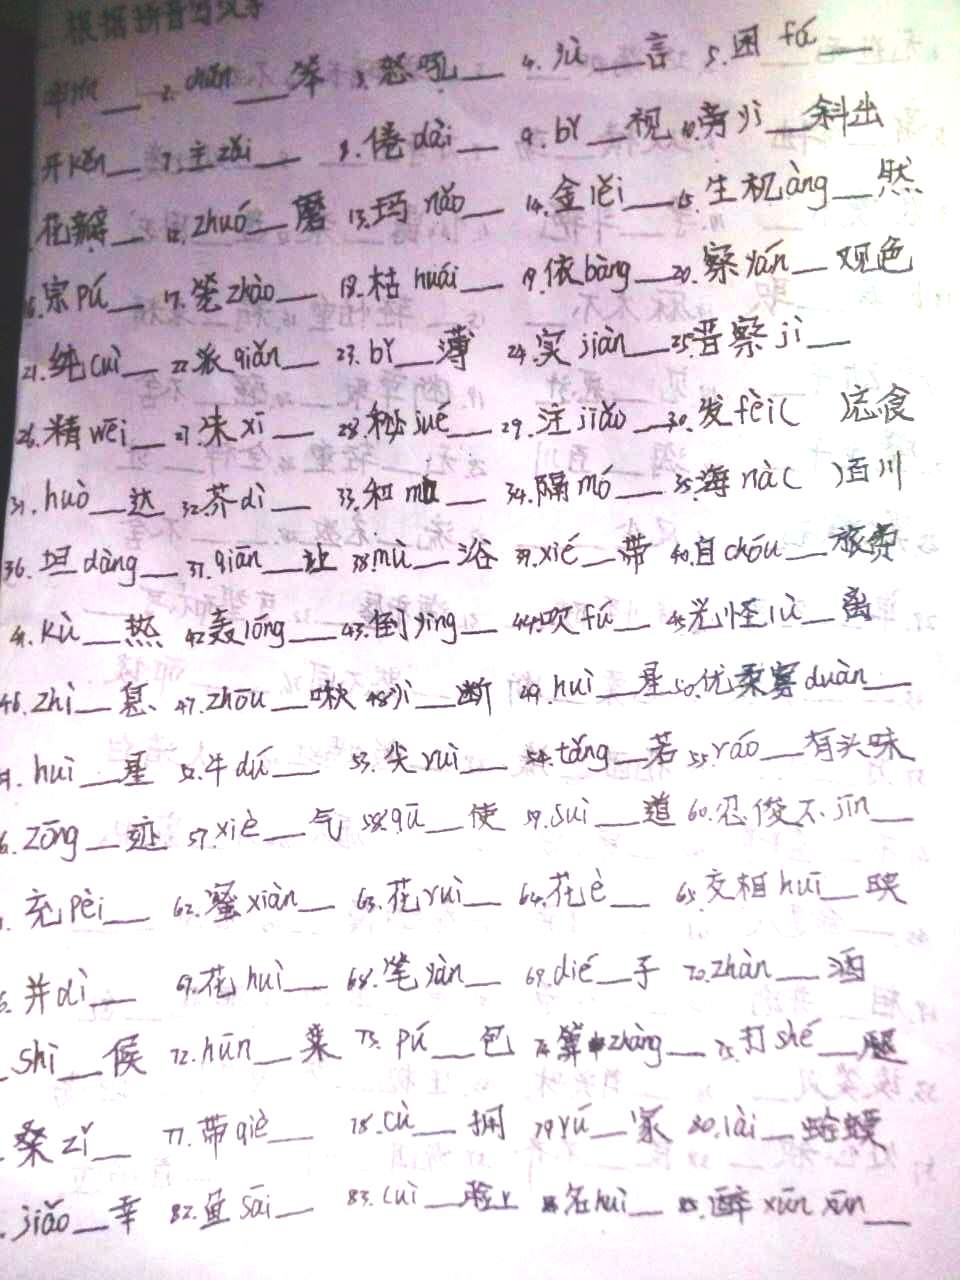 根据拼音写汉字
2. chǎn__笨 3. 怒吼__ 4. yù__言 5. 困fá__
开kěn__ 7. 主zǎi__ 8. 倦dài__ 9. bǐ__视 10. 旁yì__斜出
花瓣__ 12. zhuó__磨 13. 玛nǎo__ 14. 金lěi__ 15. 生机àng__然
16. 宗pú__ 17. 笼zhào__ 18. 枯huái__ 19. 依bàng__ 20. 察yán__观色
21. 纯cuì__ 22. 派qiǎn__ 23. bǐ__薄 24. 实jiàn__ 25. 晋察jì__
26. 精wēi__ 27. 朱xī__ 28. 秘jué__ 29. 汪jiǎo__ 30. 发fèi( 忘食
31. huò__达 32. 芥dì__ 33. 和mù__ 34. 隔mó__ 35. 海nà( )百川
36. 坦dàng__ 37. qiān__让 38. mù__浴 39. xié__带 40. 自chóu__旅费
41. kù__热 42. 轰lóng__ 43. 倒yǐng__ 44. 吹fú__ 45. 光怪lù__离
46. zhì__息 47. zhōu__啾 48. yì__断 49. huì__星 50. 优柔寡duàn__
huì__星 52. 牛dú__ 53. 尖ruì__ 54. tǎng__若 55. ráo__有头味
zōng__迹 57. xiè__气 58. qū__使 59. suì__道 60. 忍俊不jīn__
充pèi__ 62. 蜜xiàn__ 63. 花ruì__ 64. 花è__ 65. 交相huī__映
并dì__ 67. 花huì__ 68. 笔yàn__ 69. dié__子 70. zhàn__酒
shì__候 72. hūn__菜 73. pú__包 74. 算zhàng__ 75. 打shé__腿
桑zǐ__ 77. 带qiè__ 78. cù__拥 79. yú__家 80. lài__蛤蟆
jiǎo__幸 82. 鱼sāi__ 83. cuì__脸上 84. 名huì__ 85. 醉xūn xūn__